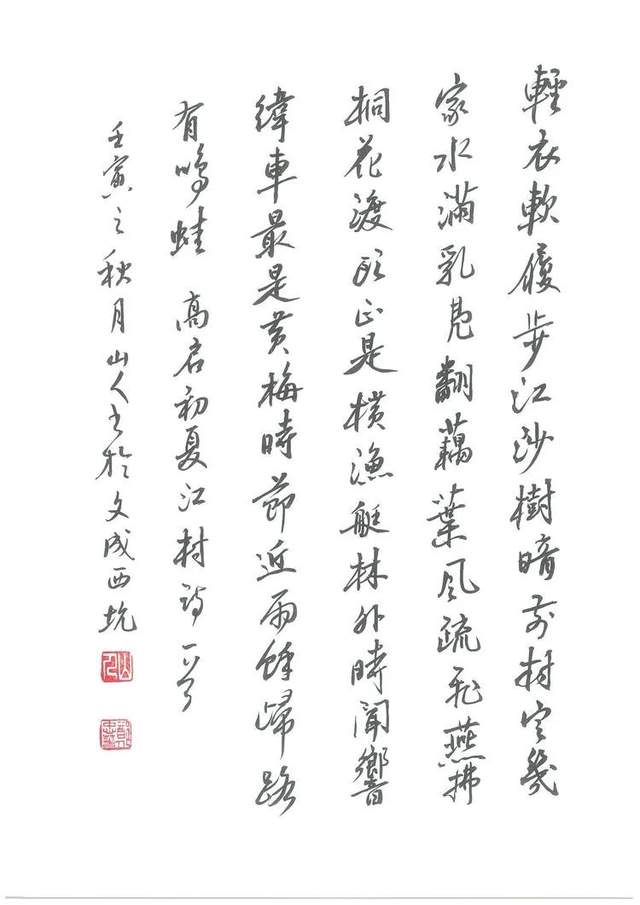 輕衣軟履步江沙樹暗前村定幾
家水滿乳凫翻藕葉風疏飛燕拂
桐花渡頭正是橫漁艇林外時聞響
緯車最是黄梅時節近雨餘歸路
有鳴蛙 高启初夏江村詩一首
壬寅之秋月山人書於文成西坑